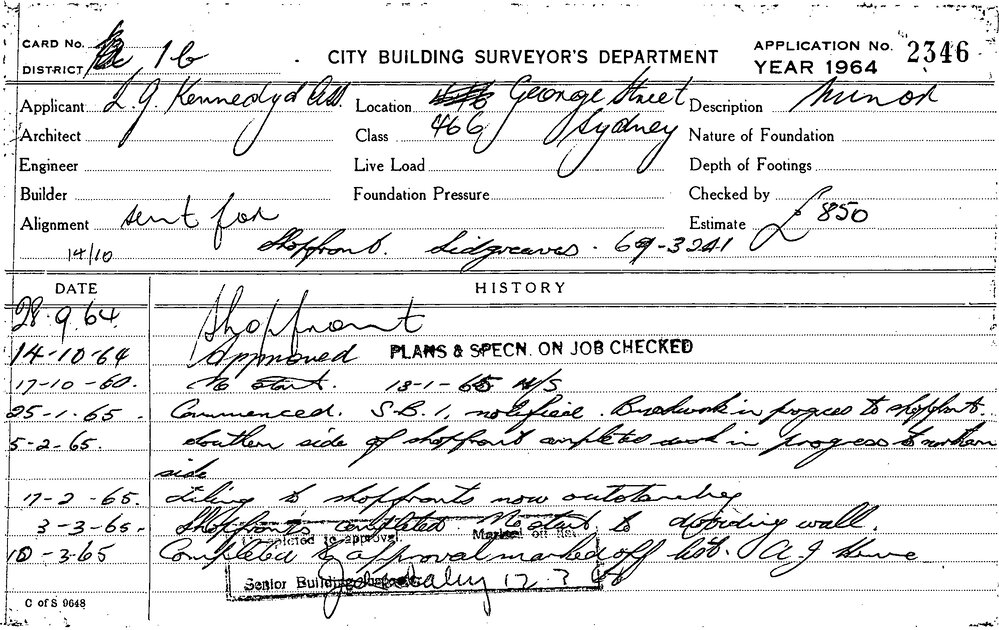 CARD No.
DISTRICT 16
CITY BUILDING SURVEYOR'S DEPARTMENT
APPLICATION No. 2346
YEAR 1964
Applicant L. J. Kennedy & Ass. Location George Street Description Minor
Architect Class 466 Sydney Nature of Foundation
Engineer Live Load Depth of Footings
Builder Foundation Pressure Checked by
Alignment sent for Estimate £850
14/10 Shopfront. Sidgreaves. 69-3241
DATE HISTORY
28.9.64. Shopfront
14-10-64 Approved PLANS & SPECN. ON JOB CHECKED
17-10-60. No start. 13-1-65 N/S
25-1-65. Commenced. S.B.1. notified. Brickwork in progress to shopfront.
5-2-65. Southern side of shopfront completed work in progress to northern
side
17-2-65. Tiling to shopfronts now outstanding
3-3-65. Shopfronts completed. No start to dividing wall.
Completed to approval. Marked off list.
10-3-65 Completed to approval marked off list. A J
Senior Building 12.3
C of S 9648